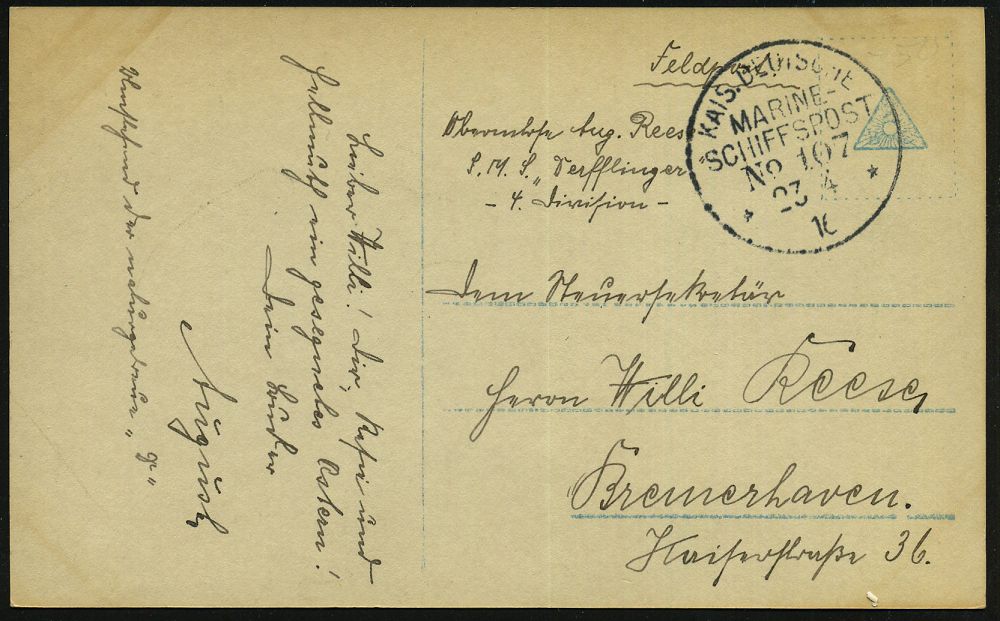 Feldpost
KAIS. DEUTSCHE
MARINE-
SCHIFFSPOST
No 107
23 4
16
Aug. Reese
S.M.S. „Derfflinger"
- 4. Division -
Dem Steuersekretär
Herrn Willi Reese,
Bremerhaven.
Kaiserstraße 36.
Lieber Willi! Dir, und
Hellmuth ein gesegnetes Ostern!
Dein Bruder
August
der